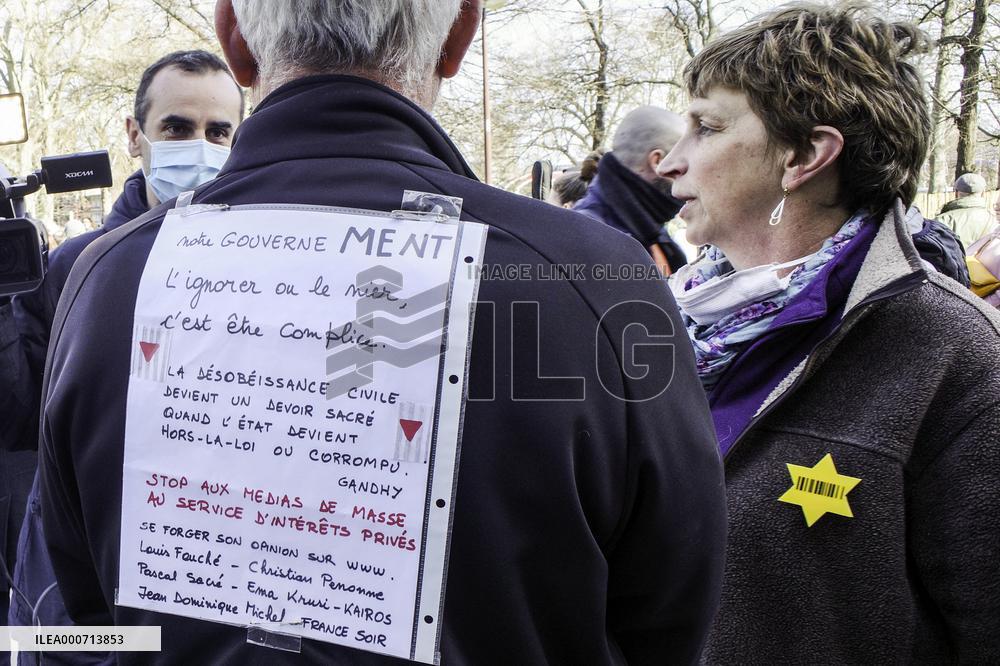 XDCAM
notre GOUVERNE MENT
L'ignorer ou le nier,
c'est être complice.
LA DÉSOBÉISSANCE CIVILE
DEVIENT UN DEVOIR SACRÉ
QUAND L'ÉTAT DEVIENT
HORS-LA-LOI OU CORROMPU.
GANDHY
STOP AUX MEDIAS DE MASSE
AU SERVICE D'INTÉRÊTS PRIVÉS
SE FORGER SON OPINION SUR WWW.
Louis Fouché - Christian Peronne
Pascal Sacré - Ema Krusi - KAIROS
Jean Dominique Michel - FRANCE SOIR
IMAGE LINK GLOBAL
ILG
ILEA000713853